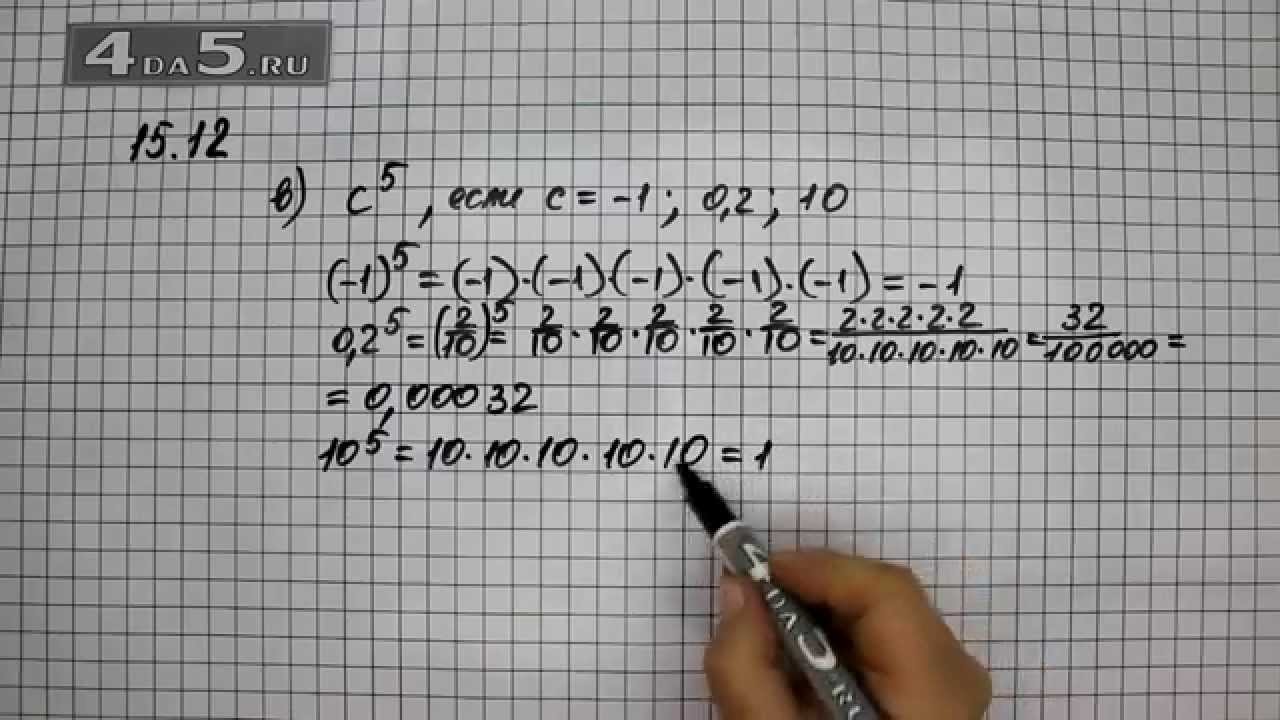 4DA5.RU
15.12
в) c⁵, если c = -1; 0,2; 10
(-1)⁵ = (-1)·(-1)·(-1)·(-1)·(-1) = -1
0,2⁵ = (2/10)⁵ = 2/10 · 2/10 · 2/10 · 2/10 · 2/10 = 2·2·2·2·2/10·10·10·10·10 = 32/100000 =
= 0,00032
10⁵ = 10·10·10·10·10 = 1
4DA5.RU